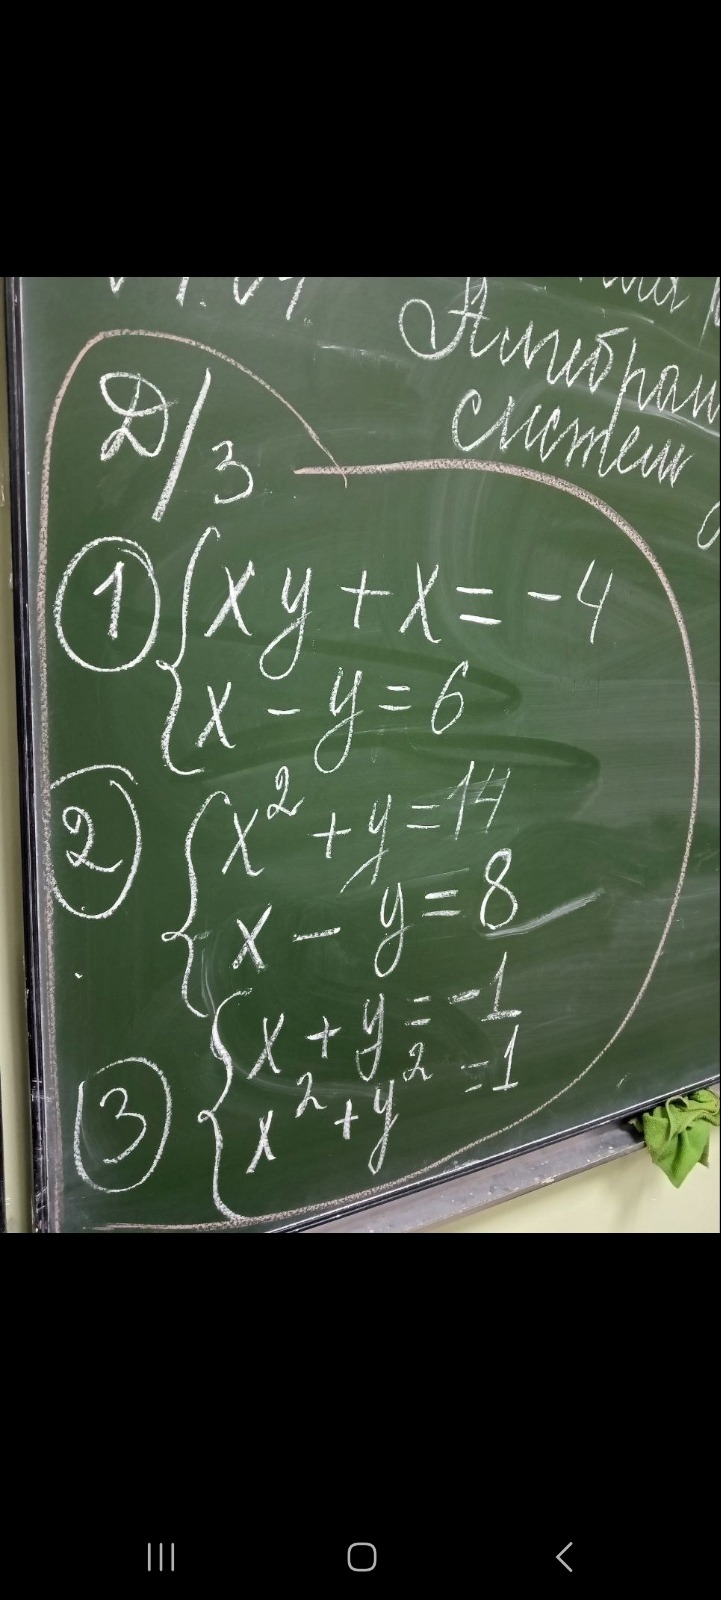 Алгебраи
систем
Д/З
① { xy + x = -4
x - y = 6
② { x² + y = 14
x - y = 8
③ { x + y = -1
x² + y² = 1